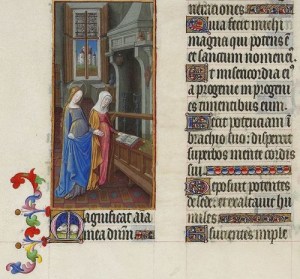 Magnificat aīa
mea dnm̄
nerationes.
Quia fecit michi
magna qui potens ē
et sanctum nomen ei
Et misericordia ei
a progenie in progeni
es timentibus eum.
Fecit potentiam in
brachio suo: dispersit
superbos mente cordis
sui
Deposuit potentes
de sede: et exaltauit hu
miles
Esurientes imple